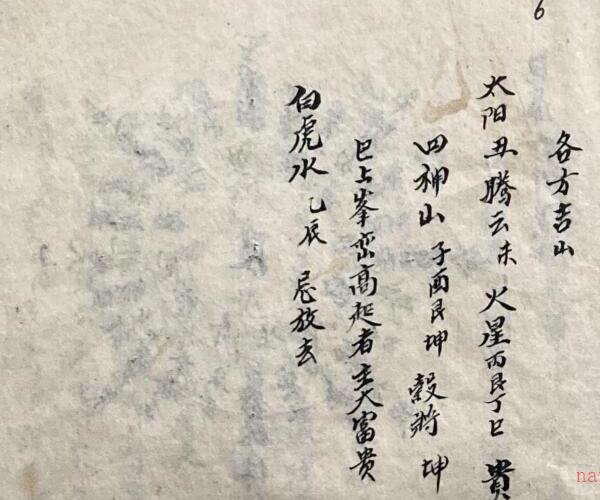 6
各方吉山
太阳丑腾云未火星丙艮丁巳贵
四神山子酉艮坤谷将坤
巳上峯峦高起者主大富贵
白虎水乙辰忌放去
na